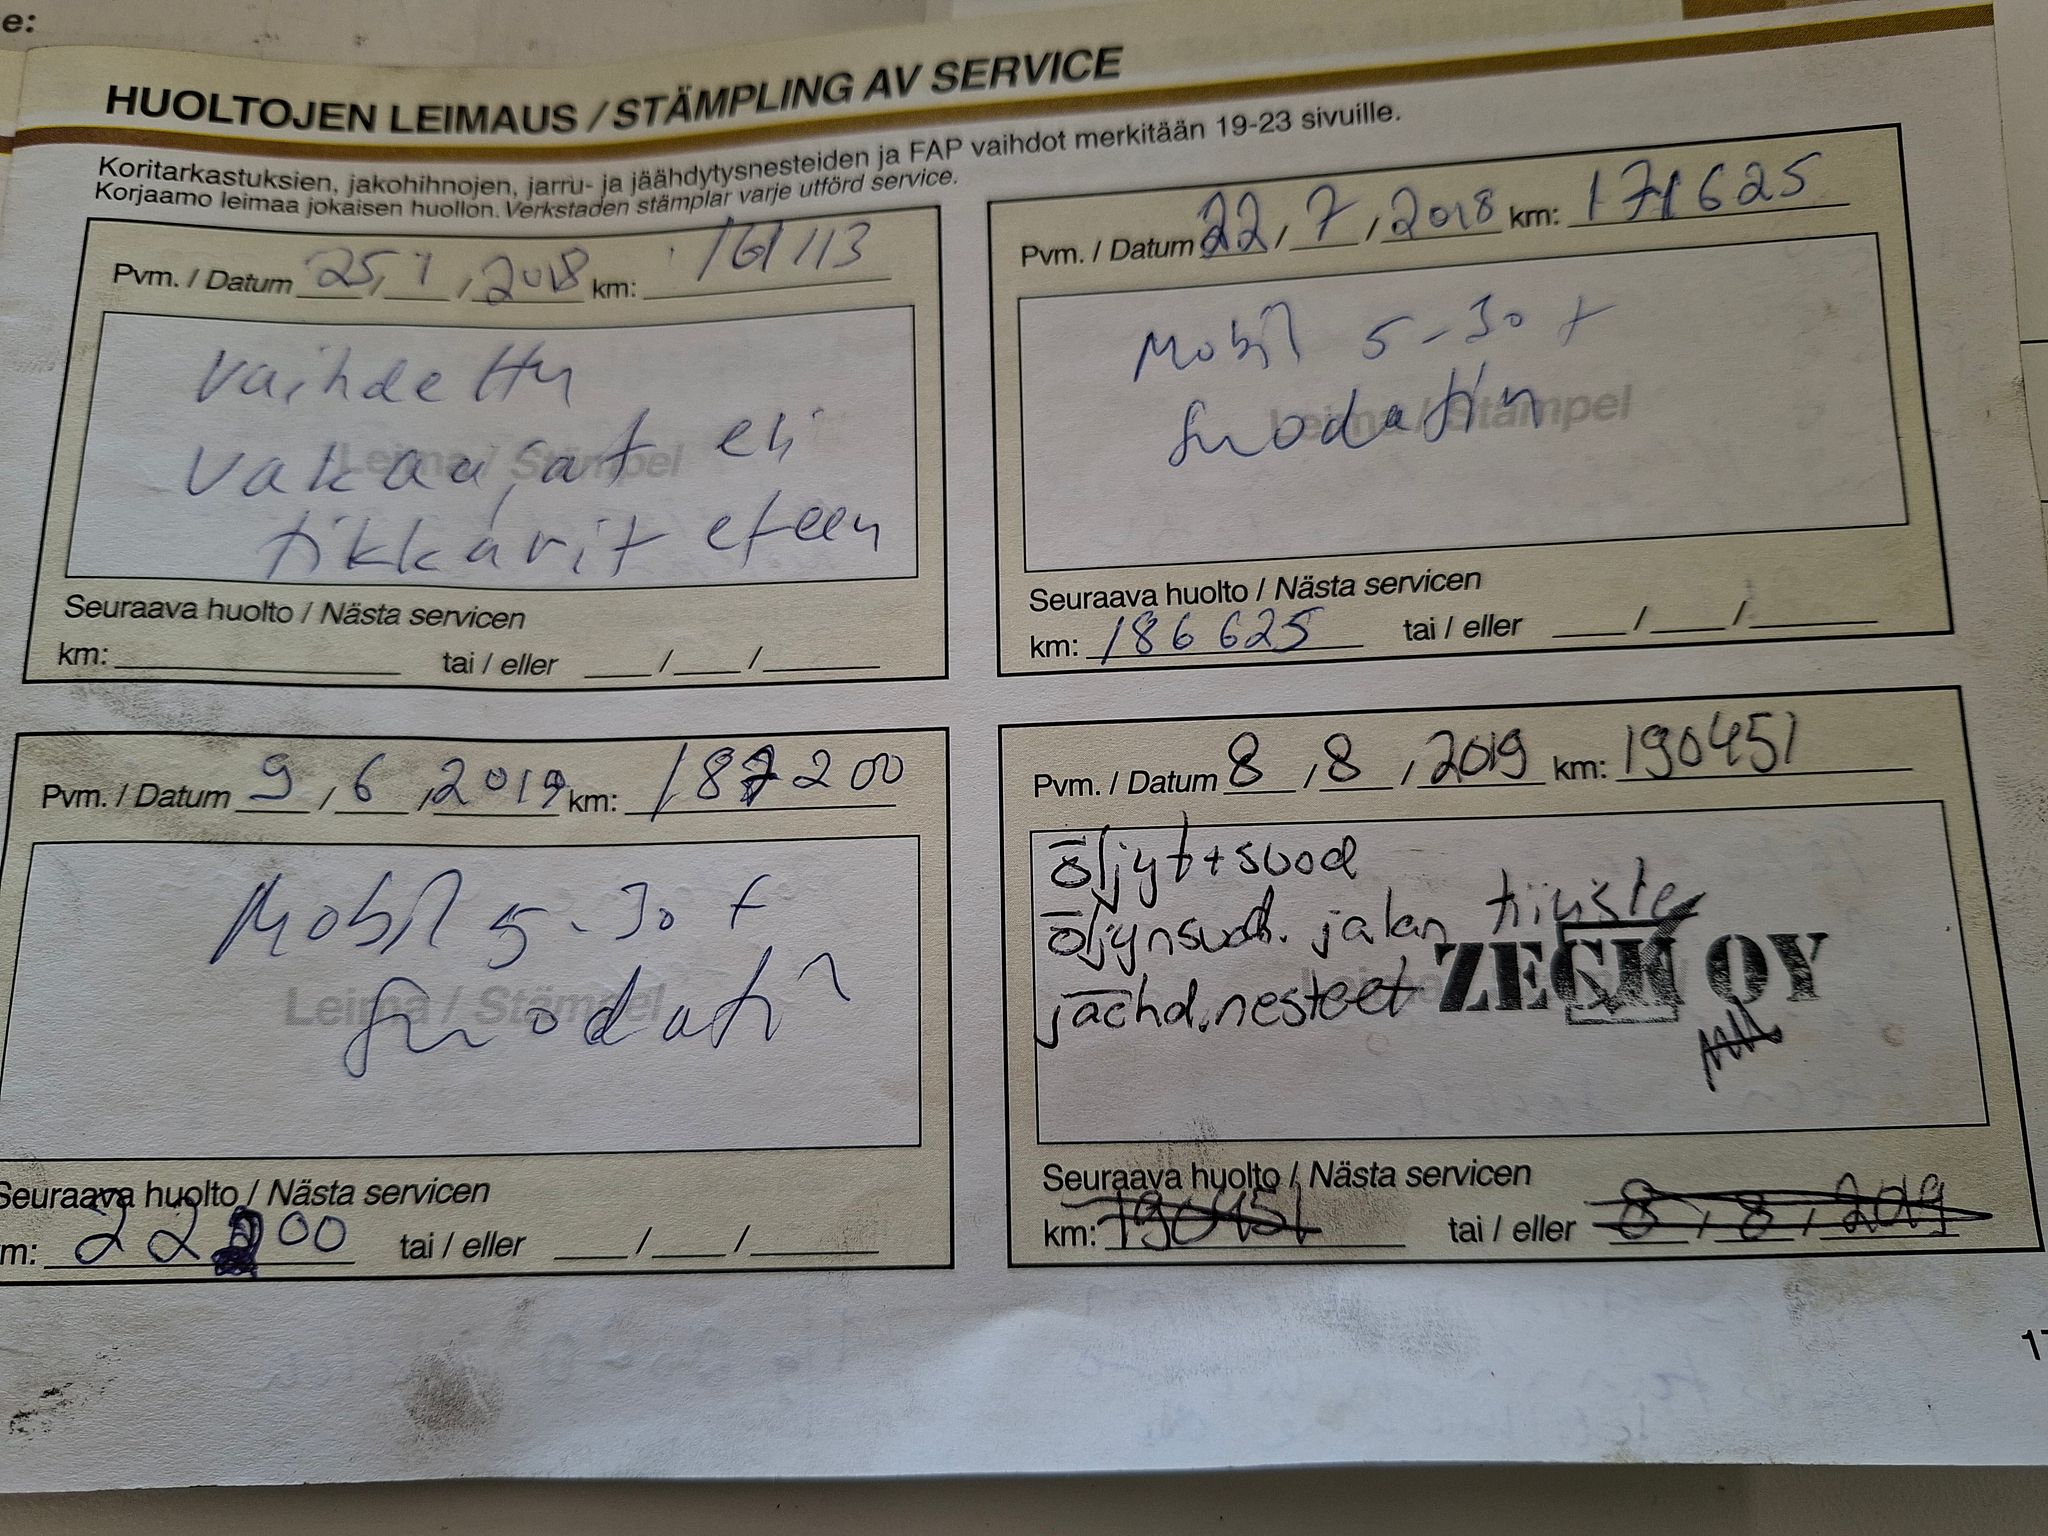 e:
HUOLTOJEN LEIMAUS / STÄMPLING AV SERVICE
Koritarkastuksien, jakohihnojen, jarru- ja jäähdytysnesteiden ja FAP vaihdot merkitään 19-23 sivuille.
Korjaamo leimaa jokaisen huollon. Verkstaden stämplar varje utförd service.
Pvm. / Datum 25, 1, 2018 km: 161113
Leima / Stämpel
vaihdettu
vakaajat eli
tikkarit eteen
Seuraava huolto / Nästa servicen
km: tai / eller / /
Pvm. / Datum 22, 7, 2018 km: 171625
Leima / Stämpel
Mobil 5-30 +
suodatin
Seuraava huolto / Nästa servicen
km: 186625 tai / eller / /
Pvm. / Datum 9, 6, 2019 km: 187200
Leima / Stämpel
Mobil 5-30 +
suodatin
Seuraava huolto / Nästa servicen
m: 22 00 tai / eller / /
Pvm. / Datum 8, 8, 2019 km: 190451
öljyt+suod
öljynsuod. jalan tiiviste
jäähd.nesteet ZECH OY
Seuraava huolto / Nästa servicen
km: 190451 tai / eller 8, 8, 2019